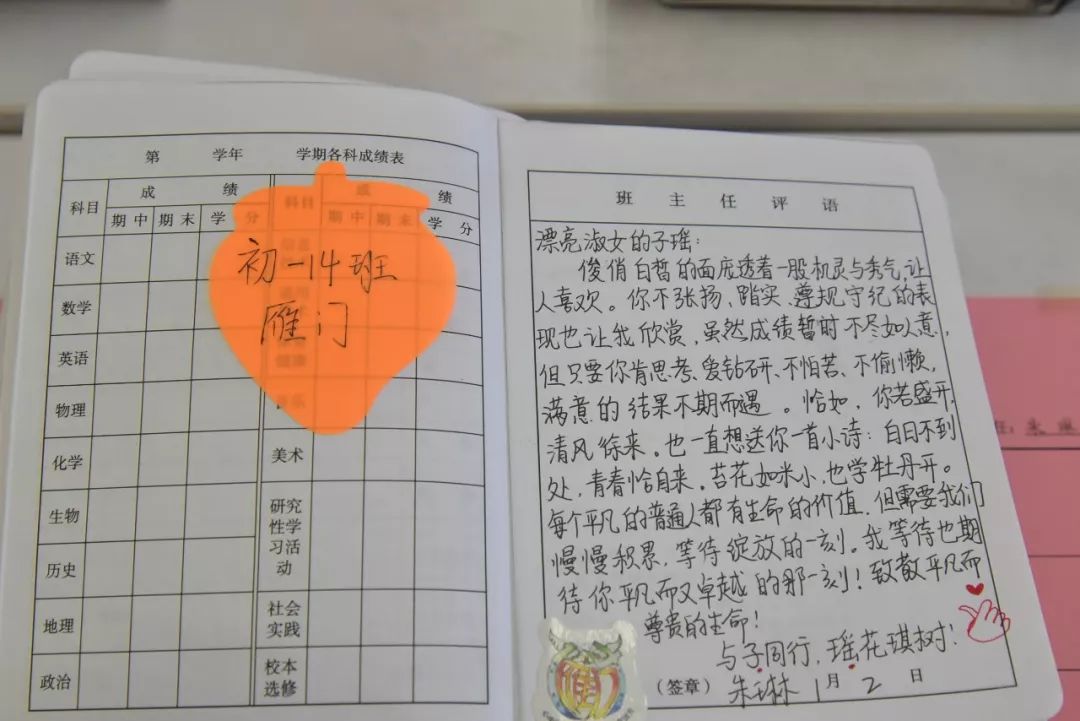 第 学年 学期各科成绩表
科目 成 绩 科目 成 绩
期中 期末 学 分 期中 期末 学 分
语文
数学
英语
物理
化学
生物
历史
地理
政治
音乐
美术
研究
性学
习活
动
社会
实践
校本
选修
初一14班
雁门
班主任评语
漂亮淑女的子瑶:
俊俏白皙的面庞透着一股机灵与秀气,让
人喜欢。你不张扬,踏实、遵规守纪的表
现也让我欣赏,虽然成绩暂时不尽如人意,
但只要你肯思考、爱钻研、不怕苦、不偷懒,
满意的结果不期而遇。恰如,你若盛开,
清风徐来。也一直想送你一首小诗:白日不到
处,青春恰自来。苔花如米小,也学牡丹开。
每个平凡的普通人都有生命的价值,但需要我们
慢慢积累,等待绽放的一刻。我等待也期
待你平凡而又卓越的那一刻!致敬平凡而
尊贵的生命!
与子同行,瑶花琪树!
(签章) 朱琳 1月2日
雁门